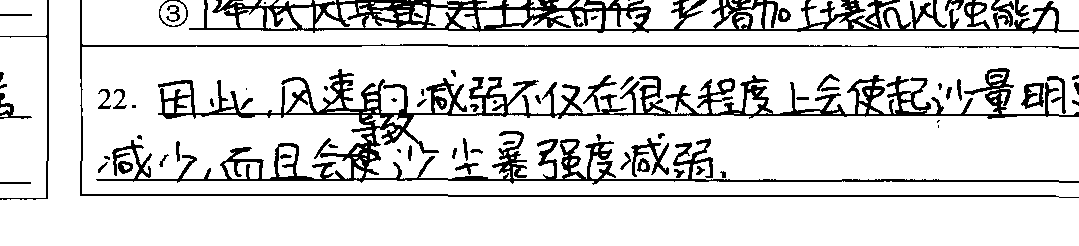 ③ 降低风
对土壤的侵 增加土壤抗风蚀能力
22. 因此,风速的减弱不仅在很大程度上会使起沙量明
导致
减少,而且会使沙尘暴强度减弱.